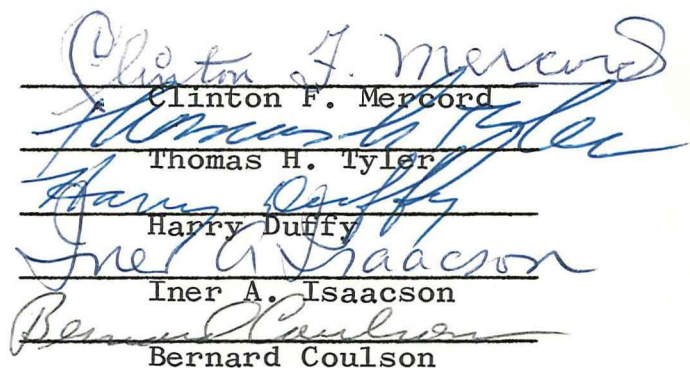 Clinton F. Mercord
Clinton F. Mercord
Thomas H Tyler
Thomas H. Tyler
Harry Duffy
Harry Duffy
Iner A Isaacson
Iner A. Isaacson
Bernard Coulson
Bernard Coulson